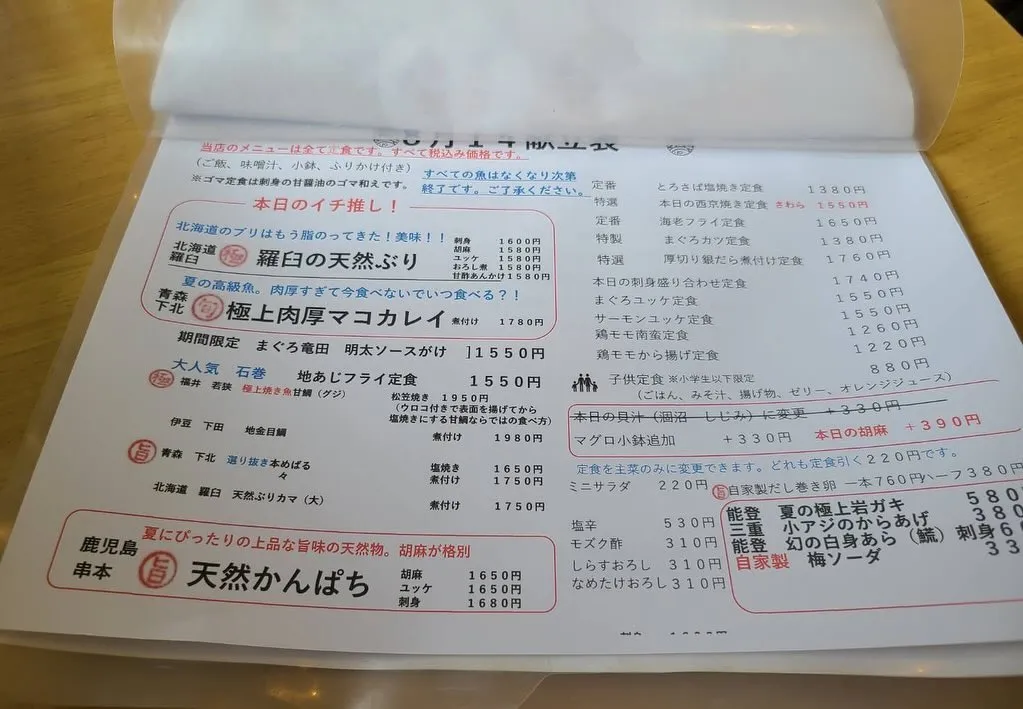 8月14献立表
当店のメニューは全て定食です。すべて税込み価格です。
(ご飯、味噌汁、小鉢、ふりかけ付き)
※ゴマ定食は刺身の甘醤油のゴマ和えです。
すべての魚はなくなり次第
終了です。ご了承ください。
本日のイチ推し!
北海道のブリはもう脂のってきた!美味!!
北海道
羅臼
極
羅臼の天然ぶり
刺身 1600円
胡麻 1580円
ユッケ 1580円
おろし煮 1580円
甘酢あんかけ1580円
夏の高級魚。肉厚すぎて今食べないでいつ食べる?!
青森
下北
旬
極上肉厚マコカレイ 煮付け 1780円
期間限定 まぐろ竜田 明太ソースがけ ]1550円
大人気 石巻 地あじフライ定食 1550円
極
福井 若狭 極上焼き魚甘鯛(グジ)
松笠焼き 1950円
(ウロコ付きで表面を揚げてから
塩焼きにする甘鯛ならではの食べ方)
伊豆 下田 地金目鯛 煮付け 1980円
旨
青森 下北 選り抜き本めばる 塩焼き 1650円
々 煮付け 1750円
北海道 羅臼 天然ぶりカマ(大) 煮付け 1750円
夏にぴったりの上品な旨味の天然物。胡麻が格別
鹿児島
串本
旨
天然かんぱち
胡麻 1650円
ユッケ 1650円
刺身 1680円
定番 とろさば塩焼き定食 1380円
特選 本日の西京焼き定食 さわら 1550円
定番 海老フライ定食 1650円
特製 まぐろカツ定食 1380円
特選 厚切り銀だら煮付け定食 1760円
本日の刺身盛り合わせ定食 1740円
まぐろユッケ定食 1550円
サーモンユッケ定食 1550円
鶏モモ南蛮定食 1260円
鶏モモから揚げ定食 1220円
子供定食 ※小学生以下限定 880円
(ごはん、みそ汁、揚げ物、ゼリー、オレンジジュース)
本日の貝汁(涸沼 しじみ)に変更 +330円
マグロ小鉢追加 +330円 本日の胡麻 +390円
定食を主菜のみに変更できます。どれも定食引く220円です。
ミニサラダ 220円
旨自家製だし巻き卵 一本760円ハーフ380円
塩辛 530円
モズク酢 310円
しらすおろし 310円
なめたけおろし310円
能登 夏の極上岩ガキ 580
三重 小アジのからあげ 380
能登 幻の白身あら(鱈) 刺身6
自家製 梅ソーダ 33